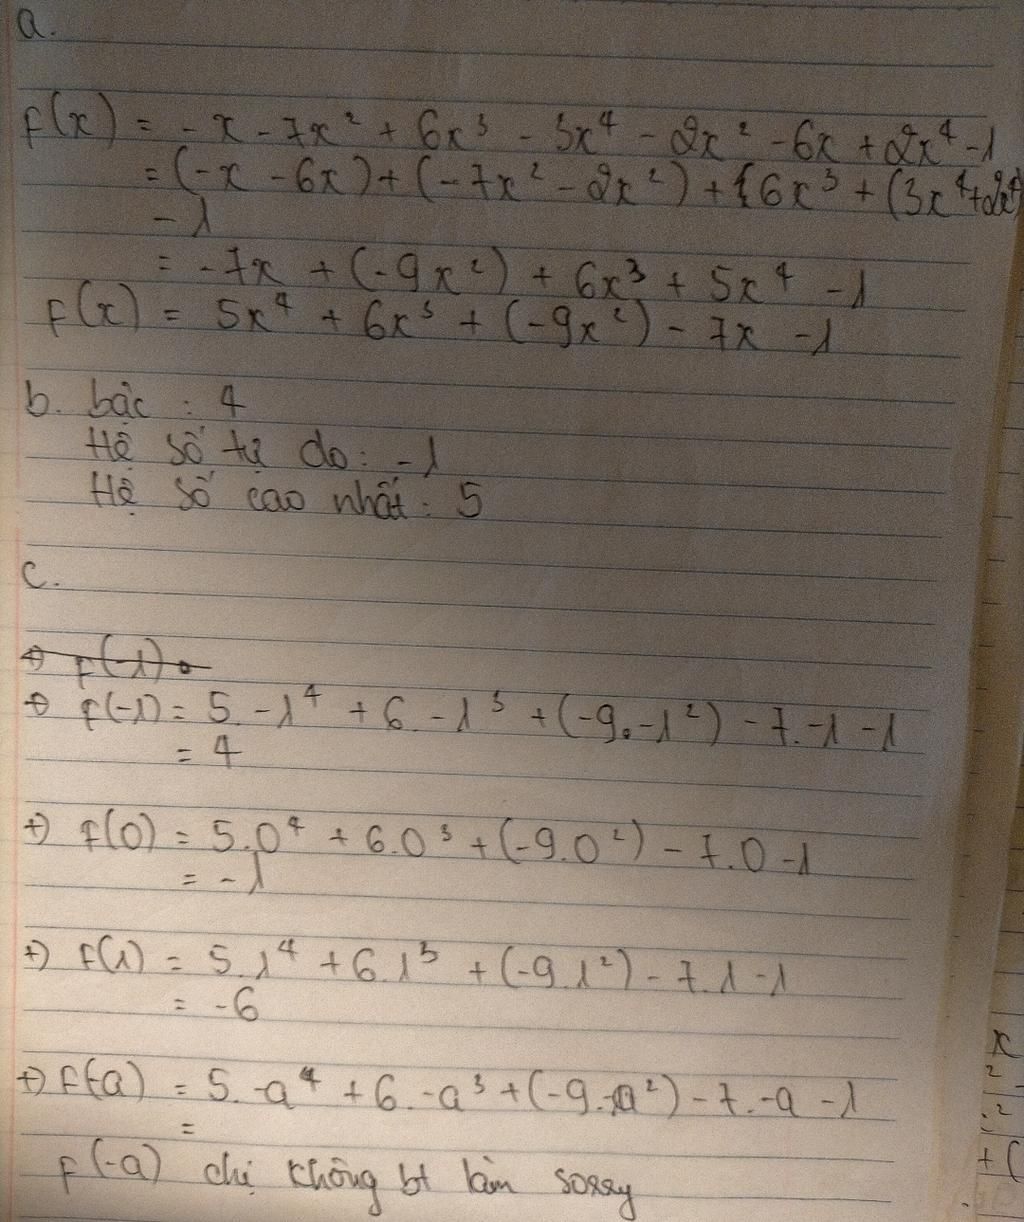 a.
f(x) = -x - 7x² + 6x³ - 3x⁴ - 2x² - 6x + 2x⁴ - 1
= (-x - 6x) + (-7x² - 2x²) + 6x³ + (3x⁴ + 2x⁴)
- 1
= -7x + (-9x²) + 6x³ + 5x⁴ - 1
f(x) = 5x⁴ + 6x³ + (-9x²) - 7x - 1
b. bậc : 4
Hệ số tự do : -1
Hệ số cao nhất : 5
c.
+) f(-1) =
+) f(-1) = 5.-1⁴ + 6.-1³ + (-9.-1²) - 7.-1 - 1
= 4
+) f(0) = 5.0⁴ + 6.0³ + (-9.0²) - 7.0 - 1
= -1
+) f(1) = 5.1⁴ + 6.1³ + (-9.1²) - 7.1 - 1
= -6
+) f(-a) = 5.-a⁴ + 6.-a³ + (-9.-a²) - 7.-a - 1
=
f(-a) chị không bt làm sorry
x
2
.2
+ (